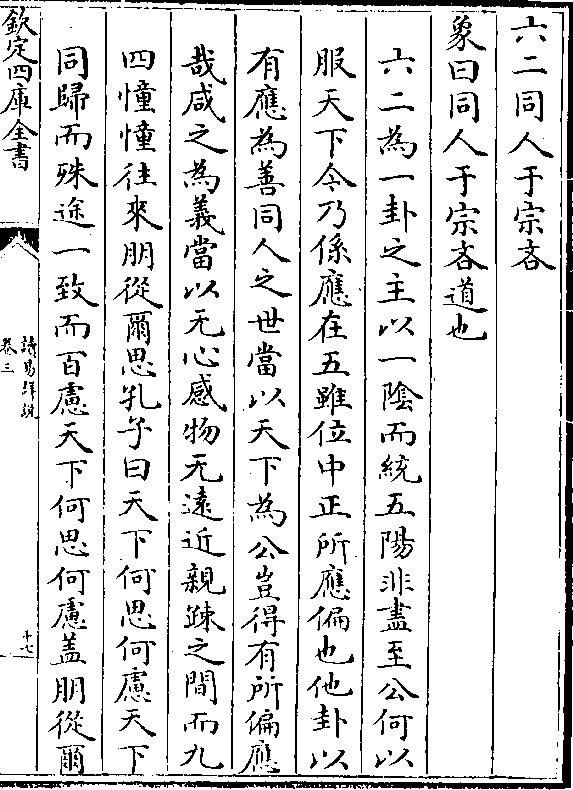 六二同人于宗吝
象曰同人于宗吝道也
六二為一卦之主以一陰而統五陽非盡至公何以
服天下今乃係應在五雖位中正所應偏也他卦以
有應為善同人之世當以天下為公豈得有所偏應
哉咸之為義當以无心感物无遠近親疎之間而九
四憧憧往來朋從爾思孔子曰天下何思何慮天下
同歸而殊途一致而百慮天下何思何慮盖朋從爾
欽定四庫全書
讀易詳說
卷三
十七